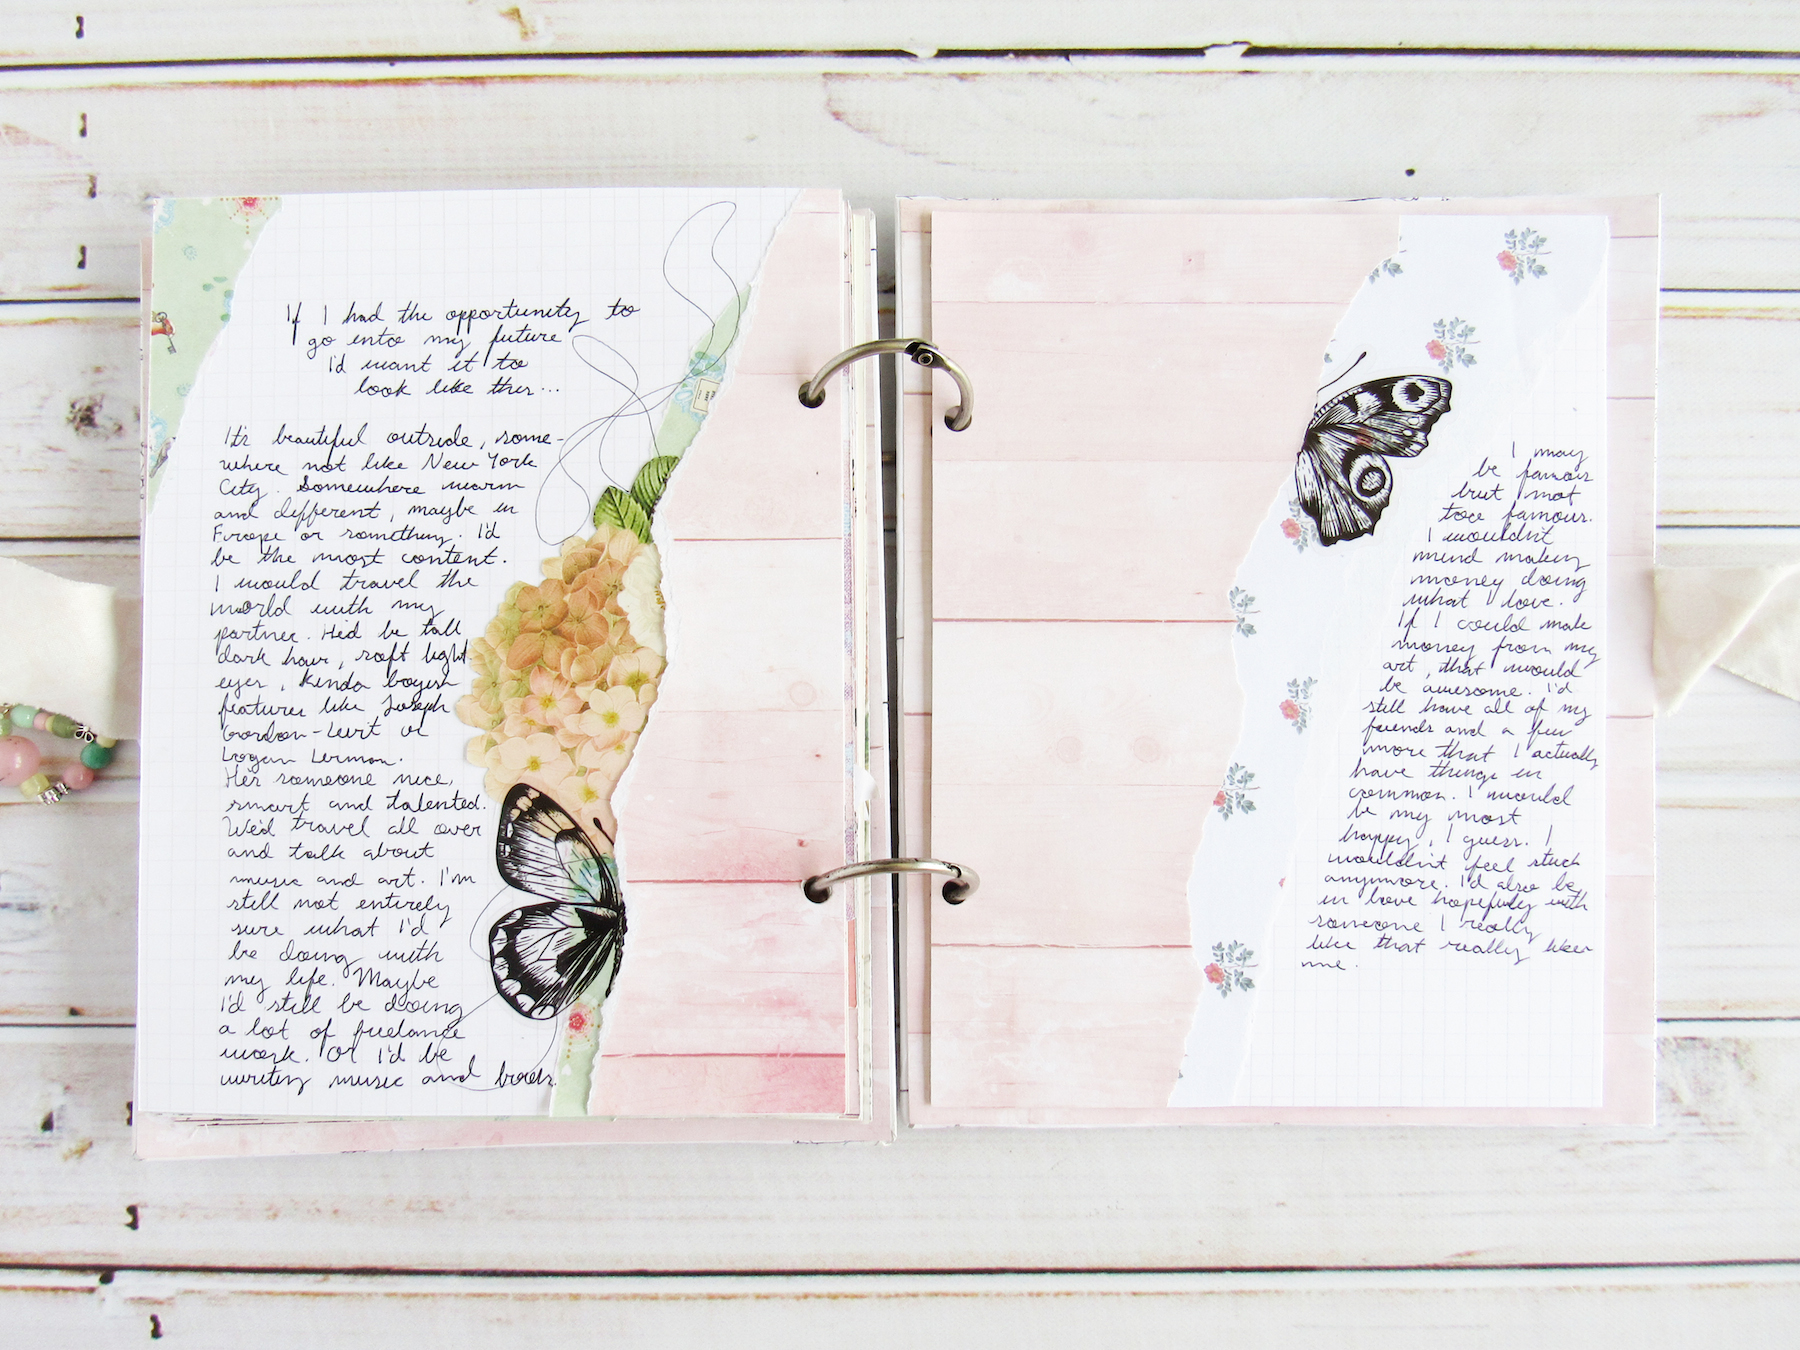 If I had the opportunity to
go into my future
I'd want it to
look like this...
It's beautiful outside, some-
where not like New York
City. Somewhere warm
and different, maybe in
Europe or something. I'd
be the most content.
I would travel the
world with my
partner. He'd be tall
dark hair, soft light
eyes, kinda boyish
features like Joseph
Gordon-Levit or
Logan Lerman.
He's someone nice,
smart and talented.
We'd travel all over
and talk about
music and art. I'm
still not entirely
sure what I'd
be doing with
my life. Maybe
I'd still be doing
a lot of freelance
work. Or I'd be
writing music and books.
I may
be famous
but not
too famous.
I wouldn't
mind making
money doing
what I love.
If I could make
money from my
art, that would
be awesome. I'd
still have all of my
friends and a few
more that I actually
have things in
common. I would
be my most
happy, I guess. I
wouldn't feel stuck
anymore. I'd also be
in love hopefully with
someone I really
like that really likes
me.